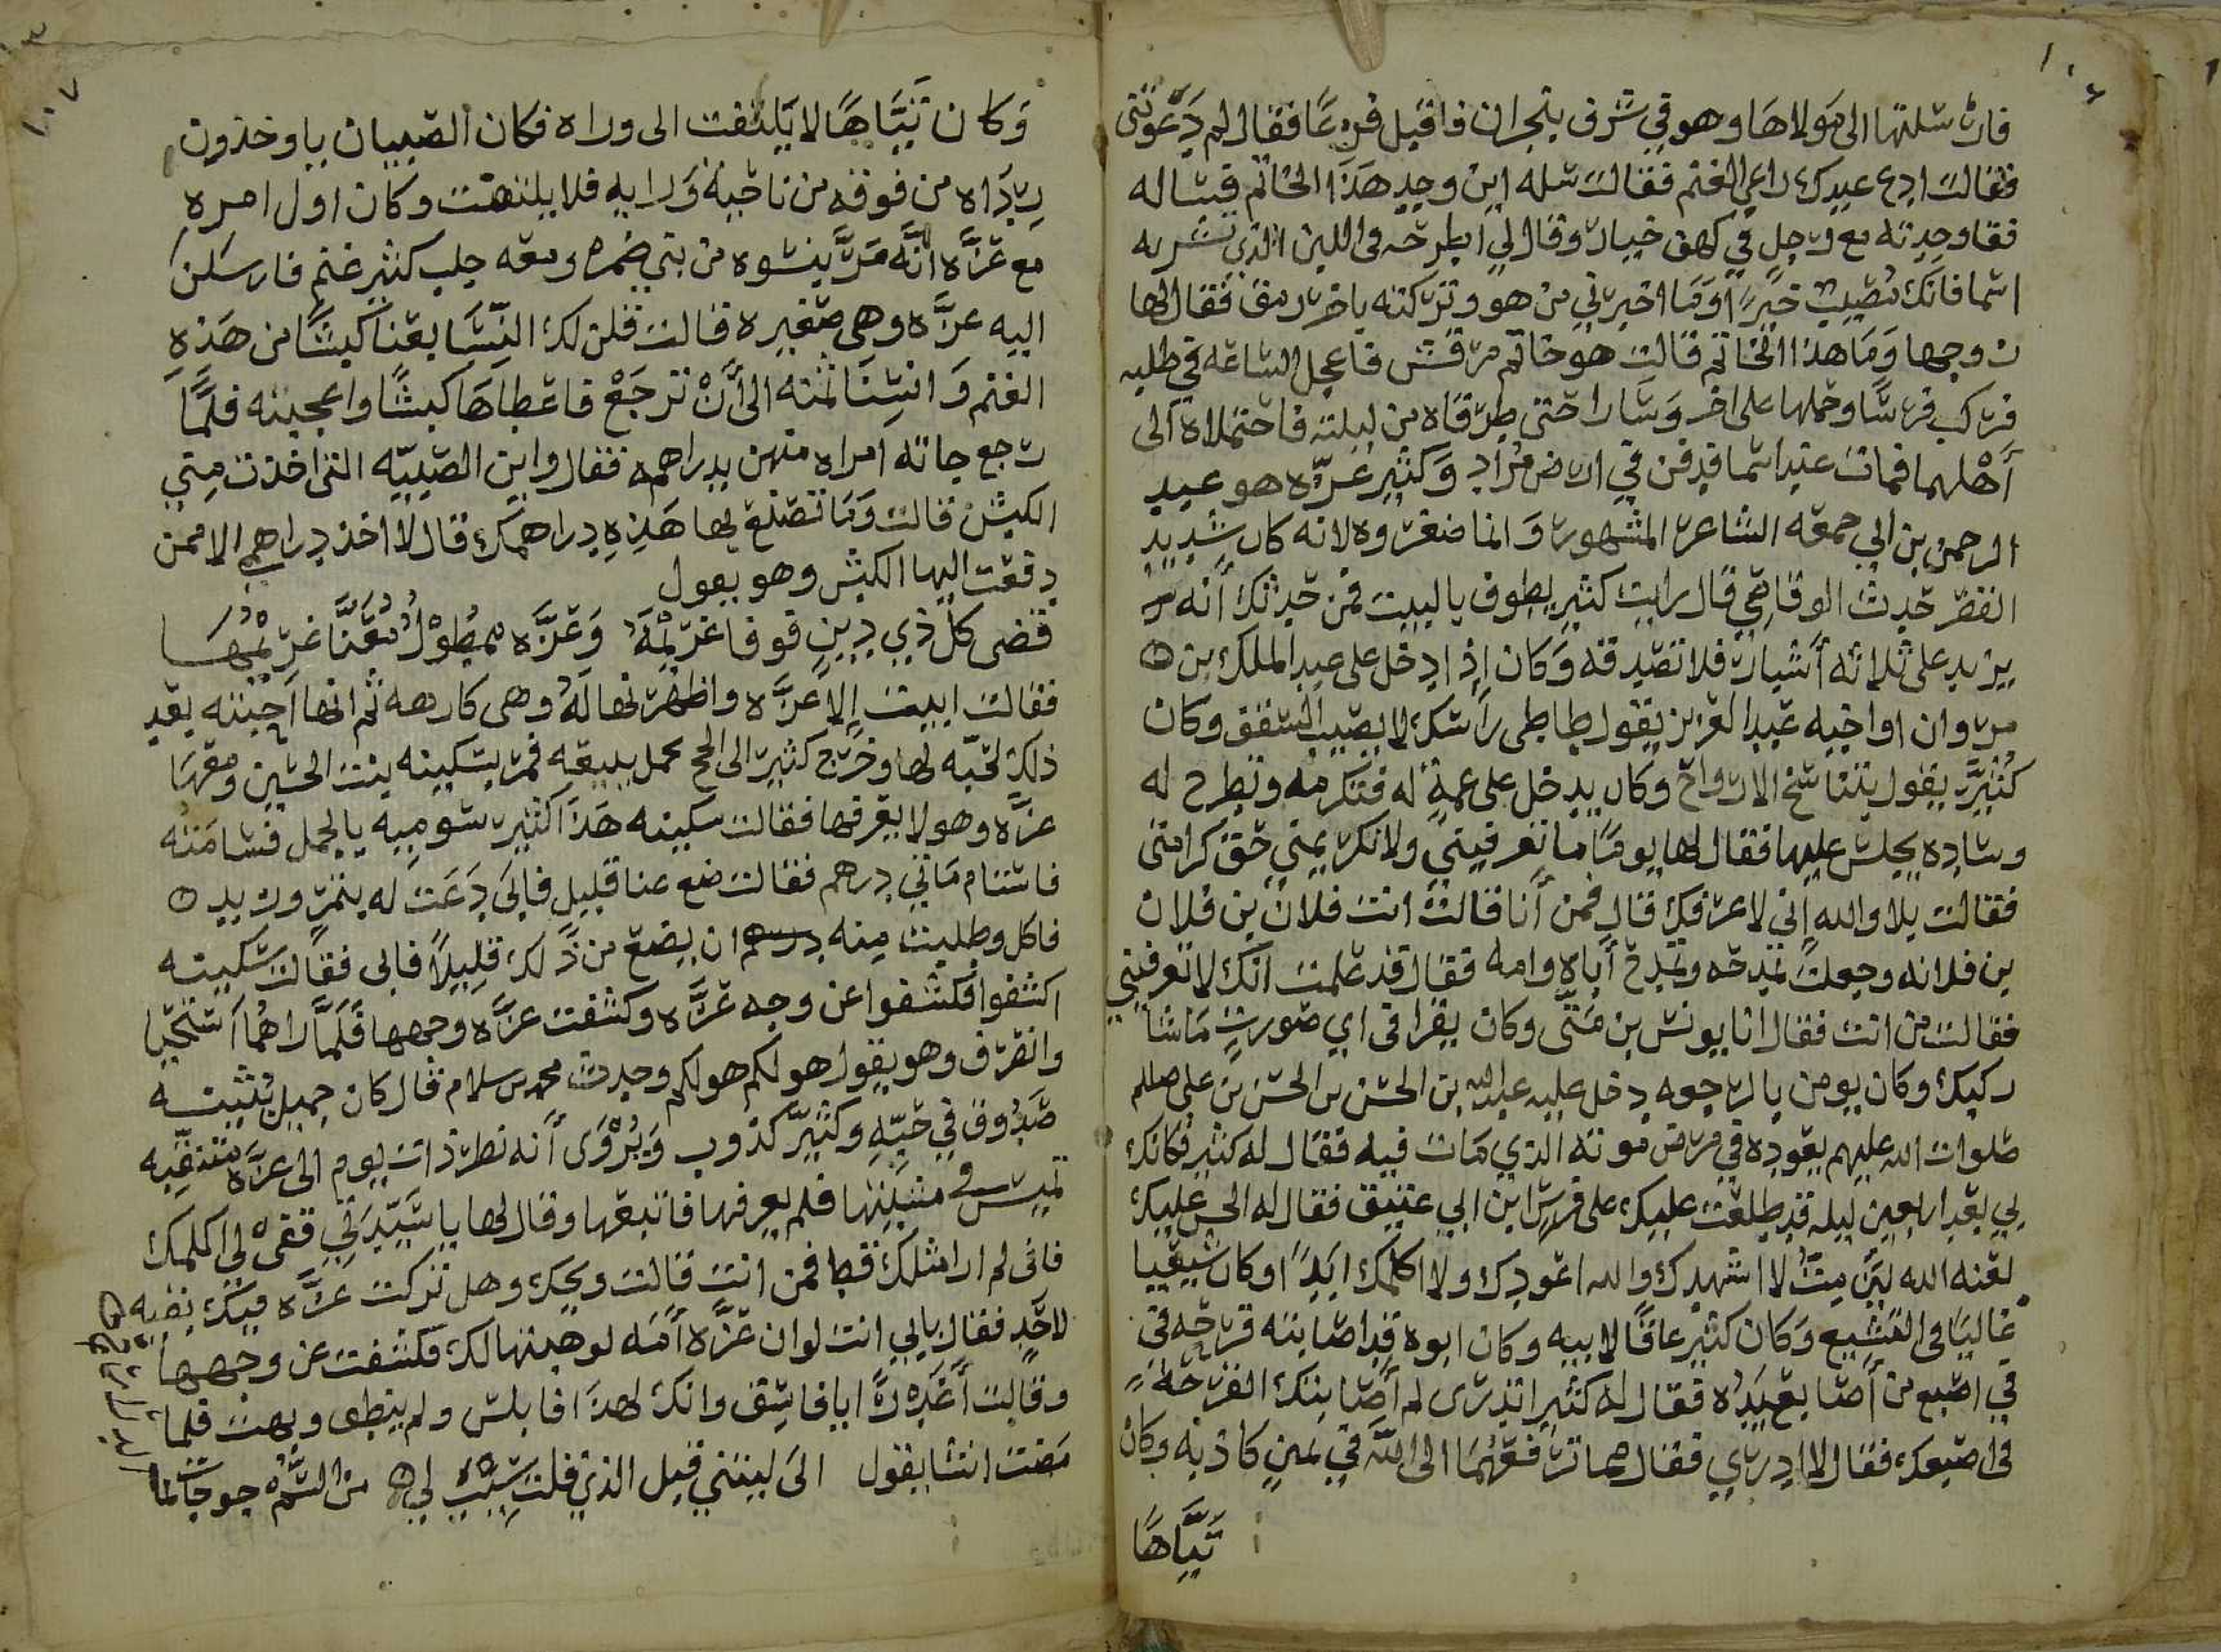 ١٠٦
فارسلتها الى مولاها وهو في شرف بنجران فاقبل فزعًا فقال لم دَعَوتني
فقالت ادع عبدك راعي الغنم فقالت سله اين وجد هَذَا الخاتم فساله
فقا وجدته مع رجل في كهف خبار وقال لي اطرحه في اللبن الذي تشربه
اسما فانك تصيب خيرًا وَمَا اخبرني من هو وتركته باخر رمق فقال لها
زوجها وَمَا هذا الخاتم قالت هو خاتم مرقش فاعجل الساعه في طلبه
فركب فرسًا وحملها على اخر وَسَارا حتى طرقاه من ليلته فاحتملاه الى
أَهْلهما فمات عند اسما فدفن في ارض مُراد وَكثير عزّه هو عبد
الرحمن بن ابي جمعه الشاعر المشهور وَانما صغروه لانه كان شديد
القصر حدث الوقاصي قال رايت كثير يطوف بالبيت فمن حدثك أنه
يزيد على ثلاثه أشبار فلا تصدقه وَكان إذا دخل على عبد الملك بن
مروان او اخيه عبد العزيز يقول طاطي رأسك لا يصيب السقف وكان
كُثَيِّر يقول بتناسخ الارواح وكان يدخل على عمةٍ له فتكرمه وتطرح له
وساده يجلس عليها فقال لها يومًا ما تعرفيني ولا تكرميني حق كرامتي
فقالت بلا والله إني لاعرفك قال فمن أنا قالت انت فلان بن فلان
بن فلانه وجعلت تمدحه وتمدح أباه وامه فقال قد علمت انك لا تعرفيني
فقالت من انت فقال انا يونس بن مَتَّى وكان يقرا في اي صورتٍ مَا شا
ركبك وكان يومن بالرجعه دخل عليه عبد الله بن الحسن بن الحسن بن علي
صلوات الله عليهم يعوده في مرض موته الذي مَات فيه فقال له كثير فكانك
بي بعد اربعين ليله قد طلعت عليك على فرس ابن ابي عتيق فقال له الحسن عليك
لعنه الله لئن مِتَّ لا اشهدك والله اعودك ولا اكلمك ابدًا وكان شيعيا
غاليًا في التشيع وَكان كثير عاقًا لابيه وكان ابوه قد اصابته قرحه في
في اصبع من أصابع يَدِه فقال له كثير اتدرى لم أصابتك القرحه
في اصبعك فقال لا ادري فقال مما ترفعهُمَا الى الله في يمين كاذبه وكان
تَيَّاهًا
١٠٧
وَكان تَيَّاهًا لا يَلتفت الى وراه فكان الصبيان ياوخذون
رِدَاه من فوقه من ناحية وَرايه فلا يلتفت وكان اول امره
مع عزَّه انَّه مَرَّ بنسوه من بني ضمره ومعه جلب كثير غنم فارسلن
اليه عزَّه وهي صغيره قالت قلن لك النِّسَا بعنا كبشًا من هَذهِ
الغنم وَانسِنَا ثمنه الى أَنْ ترجَعْ فاعطاهَا كبشًا واعجبته فلمَّا
رجع جاته امراه منهن بدراهمه فقال واين الصبيّه التى اخذت مني
الكبش قالت وَمَا تصنع بها هَذِهِ دراهمك قال لا اخذ دراهمي الا ممن
دفعت اليها الكبش وهو يقول
قضى كل ذي دينٍ فوفا غَريمَهُ وَعَزَّه ممطوْلٌ مُعَنَّا غَرِيْمُهَا
فقالت ابيت إلا عزَّه واظهرتها لهُ وهى كارهه ثم انها احبته بعد
ذلك لحبّه لها وخرج كثير الى الحج بجمل يبيعه فمر بسكينه بنت الحسين ومعهَا
عزَّه وهو لا يعرفها فقالت سكينه هَذَا كثير سوميه بالجمل فسامَتهُ
فاستام مَاتي درهم فقالت ضع عنا قليل فابَى دَعَت له بتمر وزبد
فاكل وطلبت منه ان يضع من ذَلك قليلاً فابى فقالت سكينه
اكشفوا فكشفوا عن وجه عزَّه وكشفت عزَّه وجهها فلَمَّا راهُما استحَيا
وانصرف وهو يقول هو لكم هو لكم وحدث محمد بن سلام قال كان جميل بثينه
صَدُوق في حُبِّهِ وكثيّر كذوب وَيُرْوَى أنه نظر ذات يوم الى عزَّه متنقبه
تميس في مشيتها فلم يعرفها فاتبعها وقال لها يا سَيِّدَتي قفي لي اكلمك
فانى لم ارا مثلك قط فمن انت قالت ويحك وهل تركت عزَّه فيك بقيه
لاحَدٍ فقال بابي انت لوان عزَّه أمَه لوهبتها لك فكشفت عن وجهها
وقالت أغَدرًا يا فاسق وانك لهذا فابلس ولم ينطق وبهت فلما
مَضت انشا يقول الى ليتني قبل الذي قلت شِيبَ لي من السُّمِّ